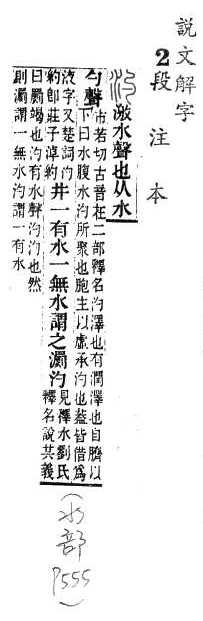 說文解字
2段注本
激水聲也从水
勺聲
市若切古音在二部釋名汋澤也有潤澤也自臍以
下曰水腹水汋所聚也胞主以虛承汋也葢皆借爲
液字又楚詞汋
約卽莊子淖約
井一有水一無水謂之瀱汋
見釋水劉氏
釋名說其義
曰罽竭也汋有水聲汋汋也然
則瀱謂一無水汋謂一有水
(水部P555)